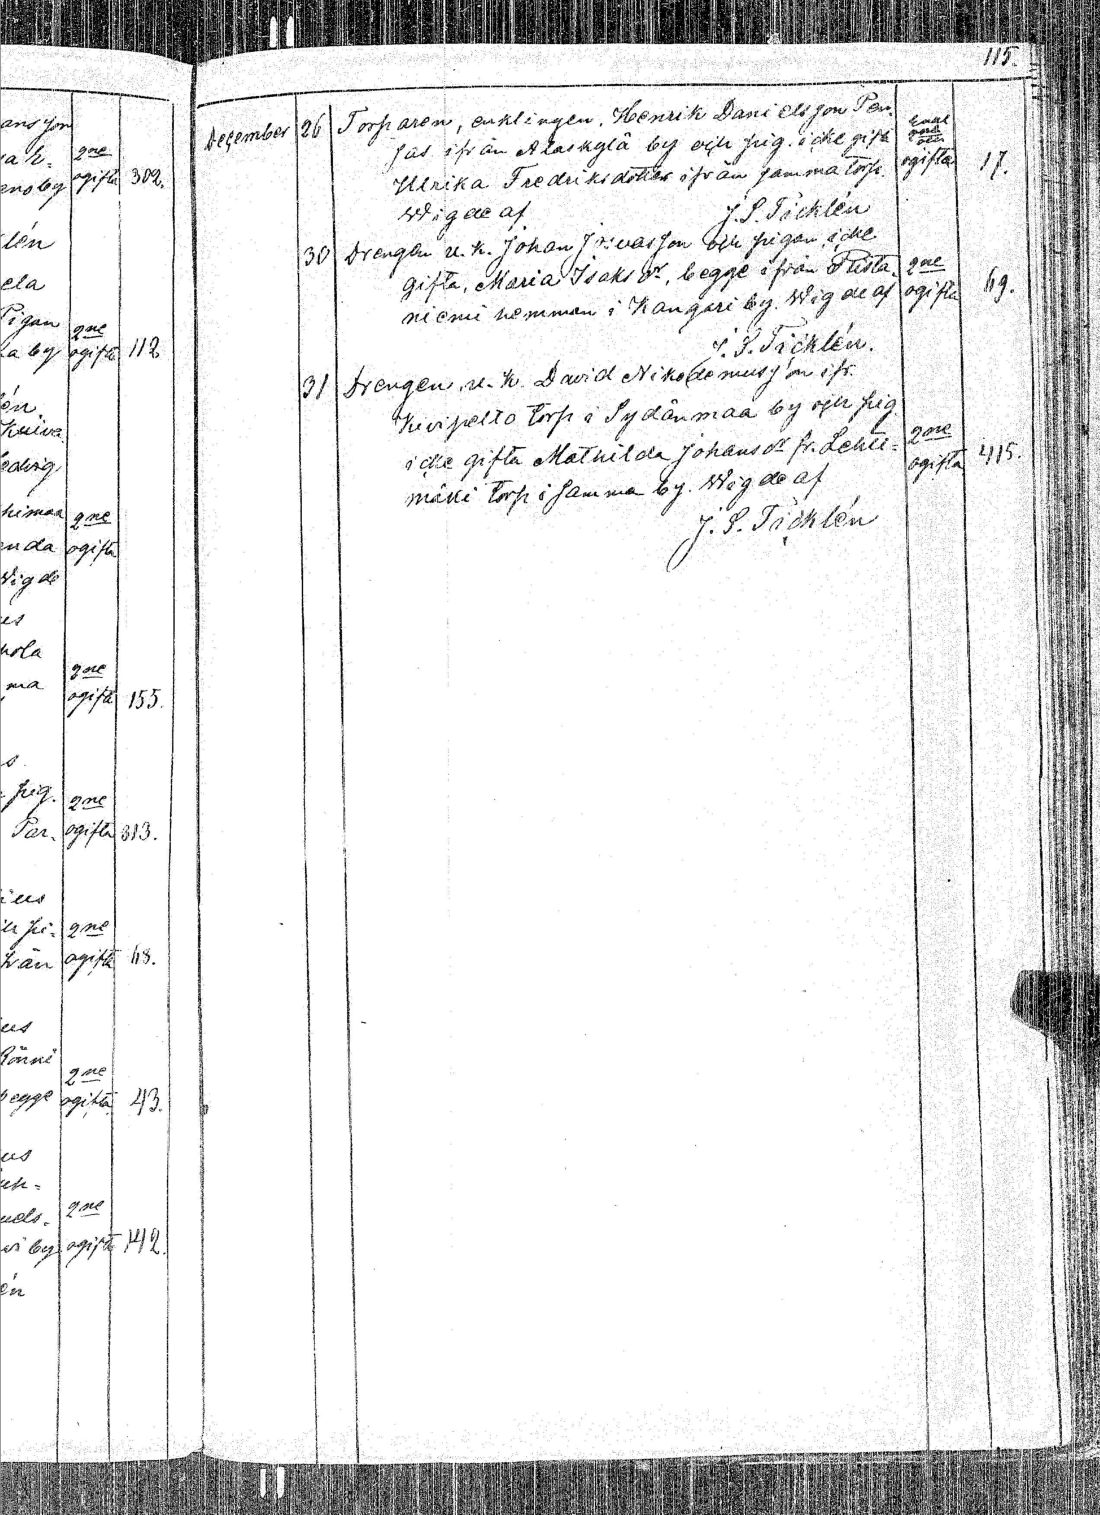 ans son
2ne
ogifta 302.
eno by
lén
ela
Pigan
2ne
la by ogifta 112
én.
Kuiva
edvig
himaa
2ne
enda ogifta
Wigde
es
nola
2ne
ma ogifta 155.
s.
pig. 2ne
Par. ogifta 313.
ius
ch pi- 2ne
från ogifta 68.
eus
Rönni
2ne
begge ogifta 43.
eus
2ne
vi by ogifta 142.
én
115.
December 26 Torparen, enklingen, Henrik Danielsson Pen-
sas ifrån Alaskylä by och pig. icke gift
Ulrika Fredriksdotter ifrån samma torp. ogifta 17.
Wigde af J. S. Ticklén
30 Drengen u. k. Johan Josuasson och pigan, icke
gifta, Maria Isaks dr, begge ifrån Tiista- 2ne
niemi hemman i Kangari by. Wigde af ogifta 69.
J. S. Ticklén.
31 Drengen, u. k. David Nikodemusson ifr.
Kivipelto torp i Sydänmaa by och pig.
icke gifta Mathilda Johans dr fr. Lehti- 2ne
mäki torp i samma by. Wigde af ogifta 415.
J. S. Ticklén